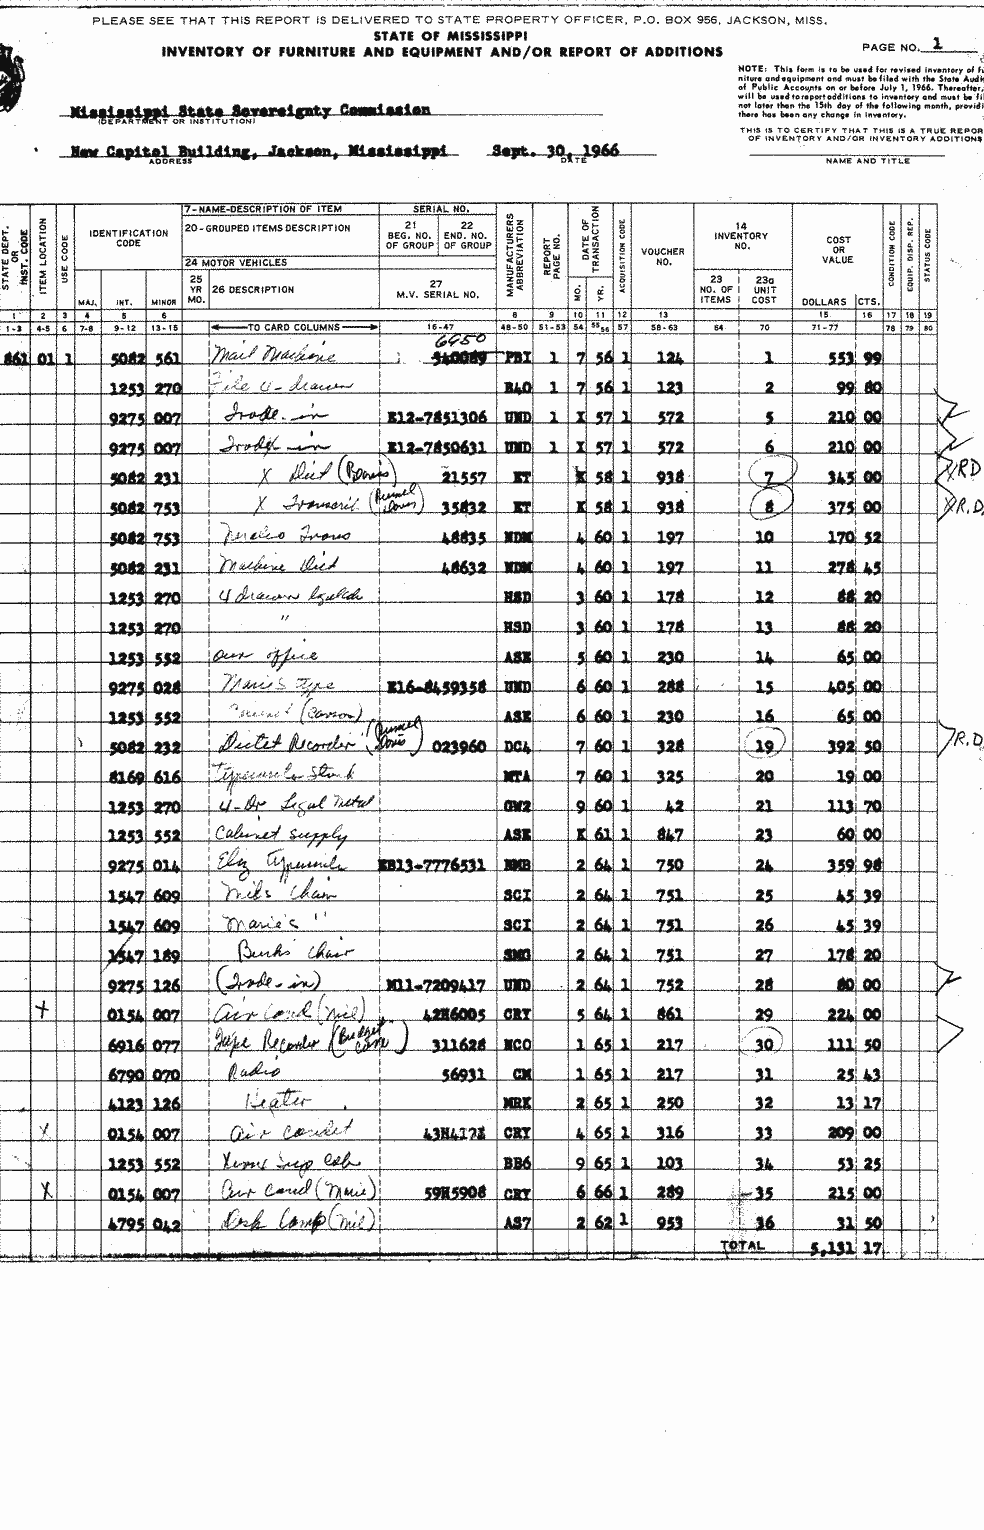 PLEASE SEE THAT THIS REPORT IS DELIVERED TO STATE PROPERTY OFFICER, P.O. BOX 956, JACKSON, MISS.
STATE OF MISSISSIPPI
INVENTORY OF FURNITURE AND EQUIPMENT AND/OR REPORT OF ADDITIONS
PAGE NO. 1
NOTE: This form is to be used for revised inventory of fu
niture and equipment and must be filed with the State Audi
of Public Accounts on or before July 1, 1966. Thereafter,
will be used to report additions to inventory and must be fil
not later than the 15th day of the following month, providi
there has been any change in inventory.
THIS IS TO CERTIFY THAT THIS IS A TRUE REPOR
OF INVENTORY AND/OR INVENTORY ADDITIONS
NAME AND TITLE
Mississippi State Sovereignty Commission
(DEPARTMENT OR INSTITUTION)
New Capitol Building, Jackson, Mississippi Sept. 30, 1966
ADDRESS DATE
STATE DEPT. OR INST. CODE
ITEM LOCATION
USE CODE
IDENTIFICATION CODE
MAJ. INT. MINOR
7-NAME-DESCRIPTION OF ITEM
20-GROUPED ITEMS DESCRIPTION
24 MOTOR VEHICLES
25 YR MO.
26 DESCRIPTION
SERIAL NO.
21 BEG. NO. OF GROUP
22 END. NO. OF GROUP
27 M.V. SERIAL NO.
MANUFACTURERS ABBREVIATION
REPORT PAGE NO.
DATE OF TRANSACTION
MO. YR.
ACQUISITION CODE
VOUCHER NO.
14 INVENTORY NO.
23 NO. OF ITEMS
23a UNIT COST
COST OR VALUE
DOLLARS CTS.
CONDITION CODE
EQUIP. DISP. REP.
STATUS CODE
1 2 3 4 5 6 8 9 10 11 12 13 15 16 17 18 19
1-3 4-5 6 7-8 9-12 13-15 TO CARD COLUMNS 16-47 48-50 51-53 54 55 56 57 58-63 64 70 71-77 78 79 80
6950
861 01 1 5082 561 Mail Machine 540089 PBI 1 7 56 1 124 1 553 99
1253 270 File 4-drawer R40 1 7 56 1 123 2 99 80
9275 007 Trade-in E12-7851306 UND 1 X 57 1 572 5 210 00
9275 007 Trade-in E12-7850631 UND 1 X 57 1 572 6 210 00
5082 231 X Dict 21557 ET X 58 1 938 7 345 00 XRD
5082 753 X 35832 ET X 58 1 938 8 375 00 XR.D.
5082 753 Trans 48835 NDM 4 60 1 197 10 170 52
5082 231 Machine Dict 48632 NDM 4 60 1 197 11 278 45
1253 270 4 drawer HSD 3 60 1 178 12 88 20
1253 270 " HSD 3 60 1 178 13 88 20
1253 552 our office ASE 5 60 1 230 14 65 00
9275 028 Marie's type E16-8459358 UND 6 60 1 288 15 405 00
1253 552 ASE 6 60 1 230 16 65 00
5082 232 Dictet Recorder 023960 DC4 7 60 1 328 19 392 50 R.D.
8169 616 MTA 7 60 1 325 20 19 00
1253 270 4-Dr Legal Metal GW2 9 60 1 42 21 113 70
1253 552 Cabinet supply ASE X 61 1 847 23 60 00
9275 014 Eliz typewriter EB13-7776531 2 64 1 750 24 359 98
1547 609 Chair SCI 2 64 1 751 25 45 39
1547 609 Marie's " SCI 2 64 1 751 26 45 39
1547 189 Chair 2 64 1 751 27 178 20
9275 126 (Trade-in) M11-7209417 UND 2 64 1 752 28 80 00
X 0154 007 Air Cond 42H6005 CRY 5 64 1 861 29 224 00
6916 077 Tape Recorder (Budget Com) 311628 NCO 1 65 1 217 30 111 50
6790 070 Radio 56931 GM 1 65 1 217 31 25 43
4123 126 Heater MRK 2 65 1 250 32 13 17
X 0154 007 Air condit CRY 4 65 1 316 33 209 00
1253 552 Sup Cab BB6 9 65 1 103 34 53 25
X 0154 007 Air cond (Marie) 59H5908 CRY 6 66 1 289 35 215 00
4795 042 Desk Lamp AS7 2 62 1 953 36 31 50
TOTAL 5,131 17